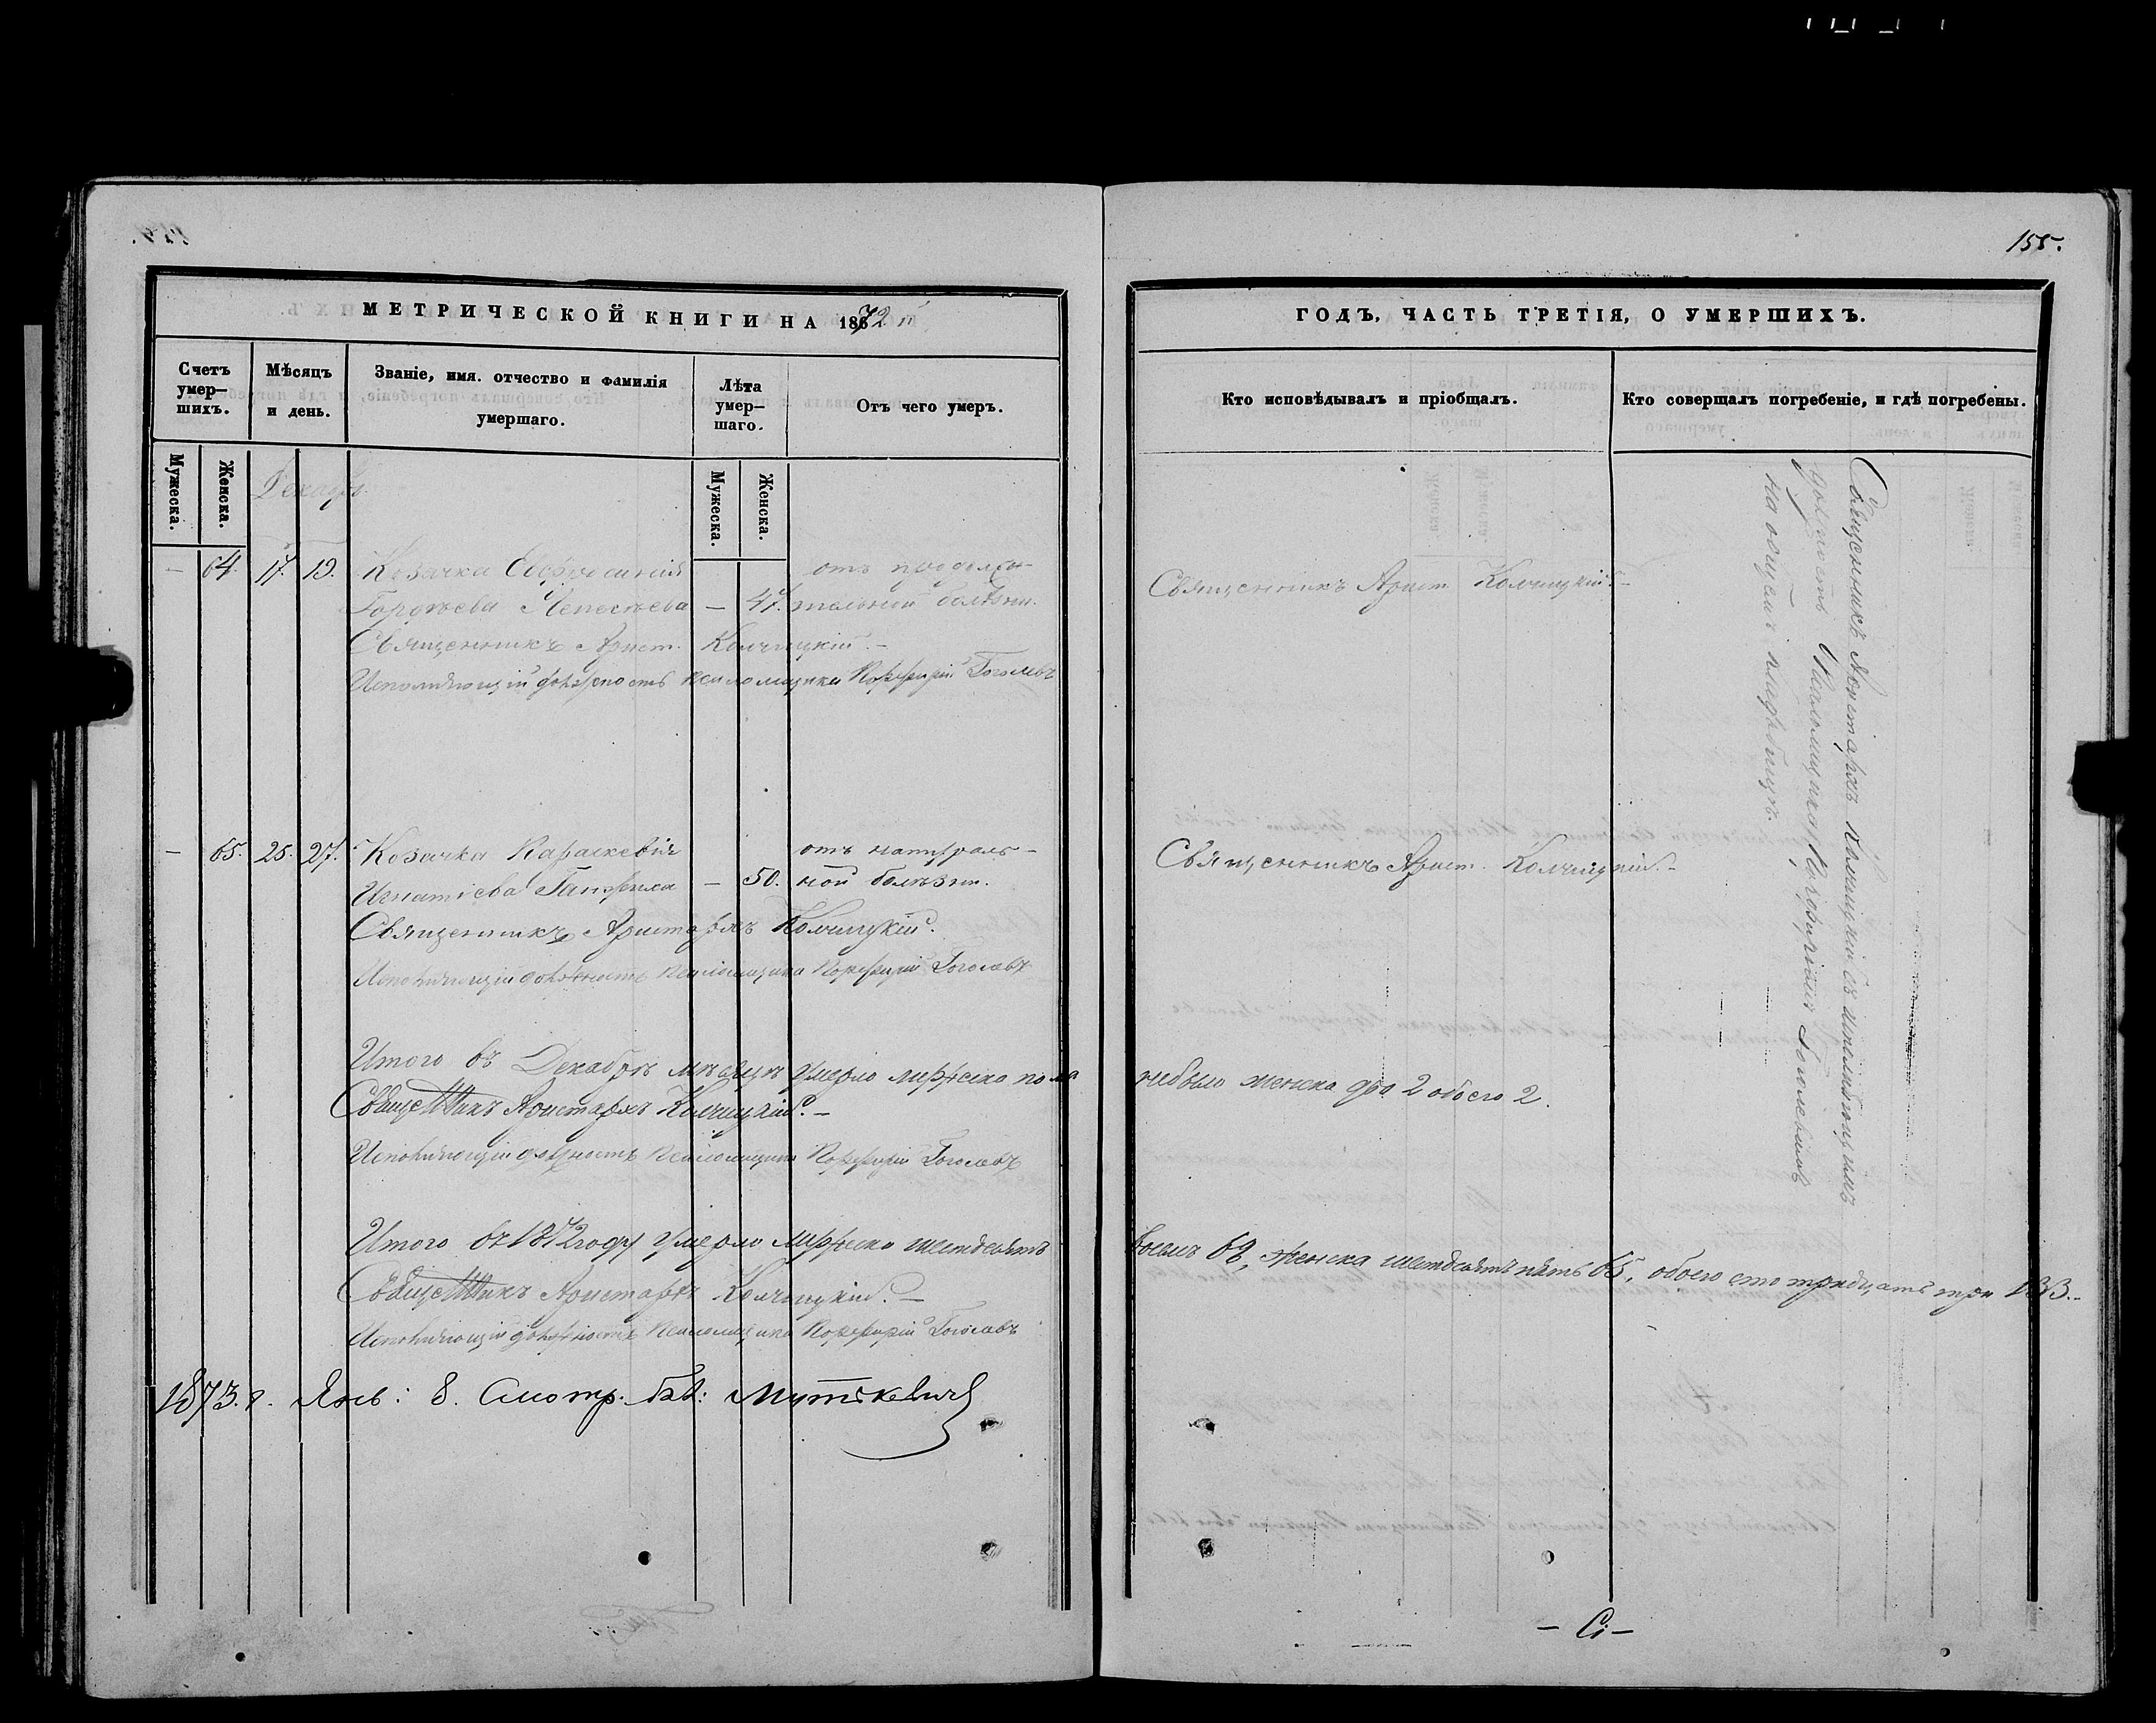 155.
МЕТРИЧЕСКОЙ КНИГИ НА 1872 й
Счетъ умер-шихъ.
Мѣсяцъ и день.
Званіе, имя. отчество и фамилія умершаго.
Лѣта умер-шаго.
Отъ чего умеръ.
Мужеска.
Женска.
Мужеска.
Женска.
Декабрь
— 64. 17. 19. Козачка Евфросинія отъ продолжи-
— 47. тельной болѣзни.
Священникъ Арист. Колчицкій. —
Исполняющій должность псаломщика Порфирій Гоголевъ
— 65. 25. 27. Козачка Параскевія отъ натураль-
Игнатіева — 50. ной болѣзни.
Священникъ Аристархъ Колчицкій.
Исполняющій должность псаломщика Порфирій Гоголевъ
Итого въ Декабрѣ мѣсяцѣ умерло мужеска пола
Священникъ Аристархъ Колчицкій. —
Исполняющій должность псаломщика Порфирій Гоголевъ
Итого въ 1872 году умерло мужеска шестдесятъ
Священникъ Аристархъ Колчицкій. —
Исполняющій должность псаломщика Порфирій Гоголевъ
1873. г. Янв: 8. Смотр. Бл:
ГОДЪ, ЧАСТЬ ТРЕТІЯ, О УМЕРШИХЪ.
Кто исповѣдывалъ и пріобщалъ.
Кто совершалъ погребеніе, и гдѣ погребены.
Священникъ Арист. Колчицкій. —
Священникъ Арист. Колчицкій. —
Священникъ Аристархъ Колчицкій съ исполняющимъ
должность Псаломщика Порфиріемъ Гоголевымъ
на общемъ кладбищѣ.
небыло женска два 2 обоего 2.
восемь 68, женска шестдесятъ пять 65, обоего сто тридцать три 133. —